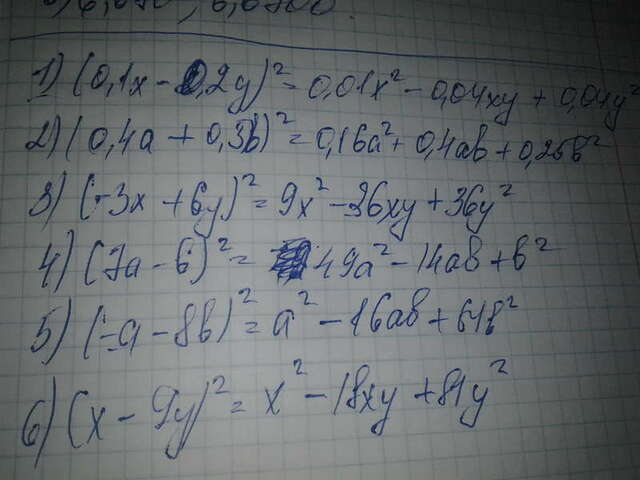 1) (0,1x - 0,2y)² = 0,01x² - 0,04xy + 0,04y²
2) (0,4a + 0,5b)² = 0,16a² + 0,4ab + 0,25b²
3) (-3x + 6y)² = 9x² - 36xy + 36y²
4) (7a - b)² = 49a² - 14ab + b²
5) (-a - 8b)² = a² - 16ab + 64b²
6) (x - 9y)² = x² - 18xy + 81y²